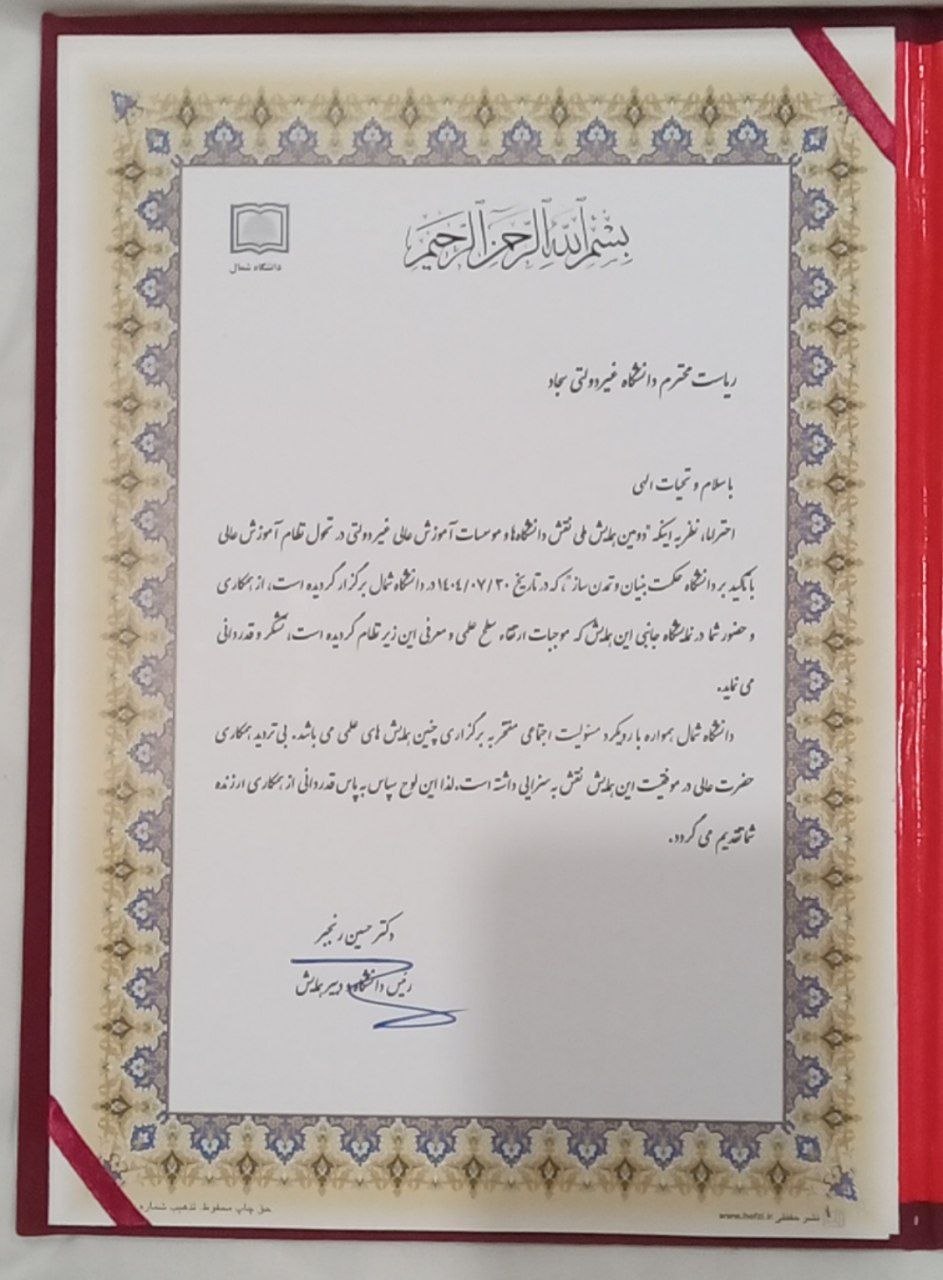 بسم الله الرحمن الرحیم
دانشگاه شمال
ریاست محترم دانشگاه غیردولتی سجاد
با سلام و تحیات الهی
احتراما، نظر به اینکه "دومین همایش ملی نقش دانشگاه‌ها و موسسات آموزش عالی غیر دولتی در تحول نظام آموزش عالی
با تاکید بر دانشگاه حکمت بنیان و تمدن ساز"، که در تاریخ ۱۴۰۴/۰۷/۳۰ در دانشگاه شمال برگزار گردیده است، از همکاری
و حضور شما در نمایشگاه جانبی این همایش که موجبات ارتقاء سطح علمی و معرفی این زیر نظام گردیده است، تشکر و قدردانی
می نماید.
دانشگاه شمال همواره با رویکرد مسئولیت اجتماعی مفتخر به برگزاری چنین همایش های علمی می باشد. بی تردید همکاری
حضرت عالی در موفقیت این همایش نقش به سزایی داشته است. لذا این لوح سپاس به پاس قدردانی از همکاری ارزنده
شما تقدیم می گردد.
دکتر حسین رنجبر
رئیس دانشگاه و دبیر همایش
نشر حفظی www.hefzi.ir
حق چاپ محفوظ. تذهیب شماره